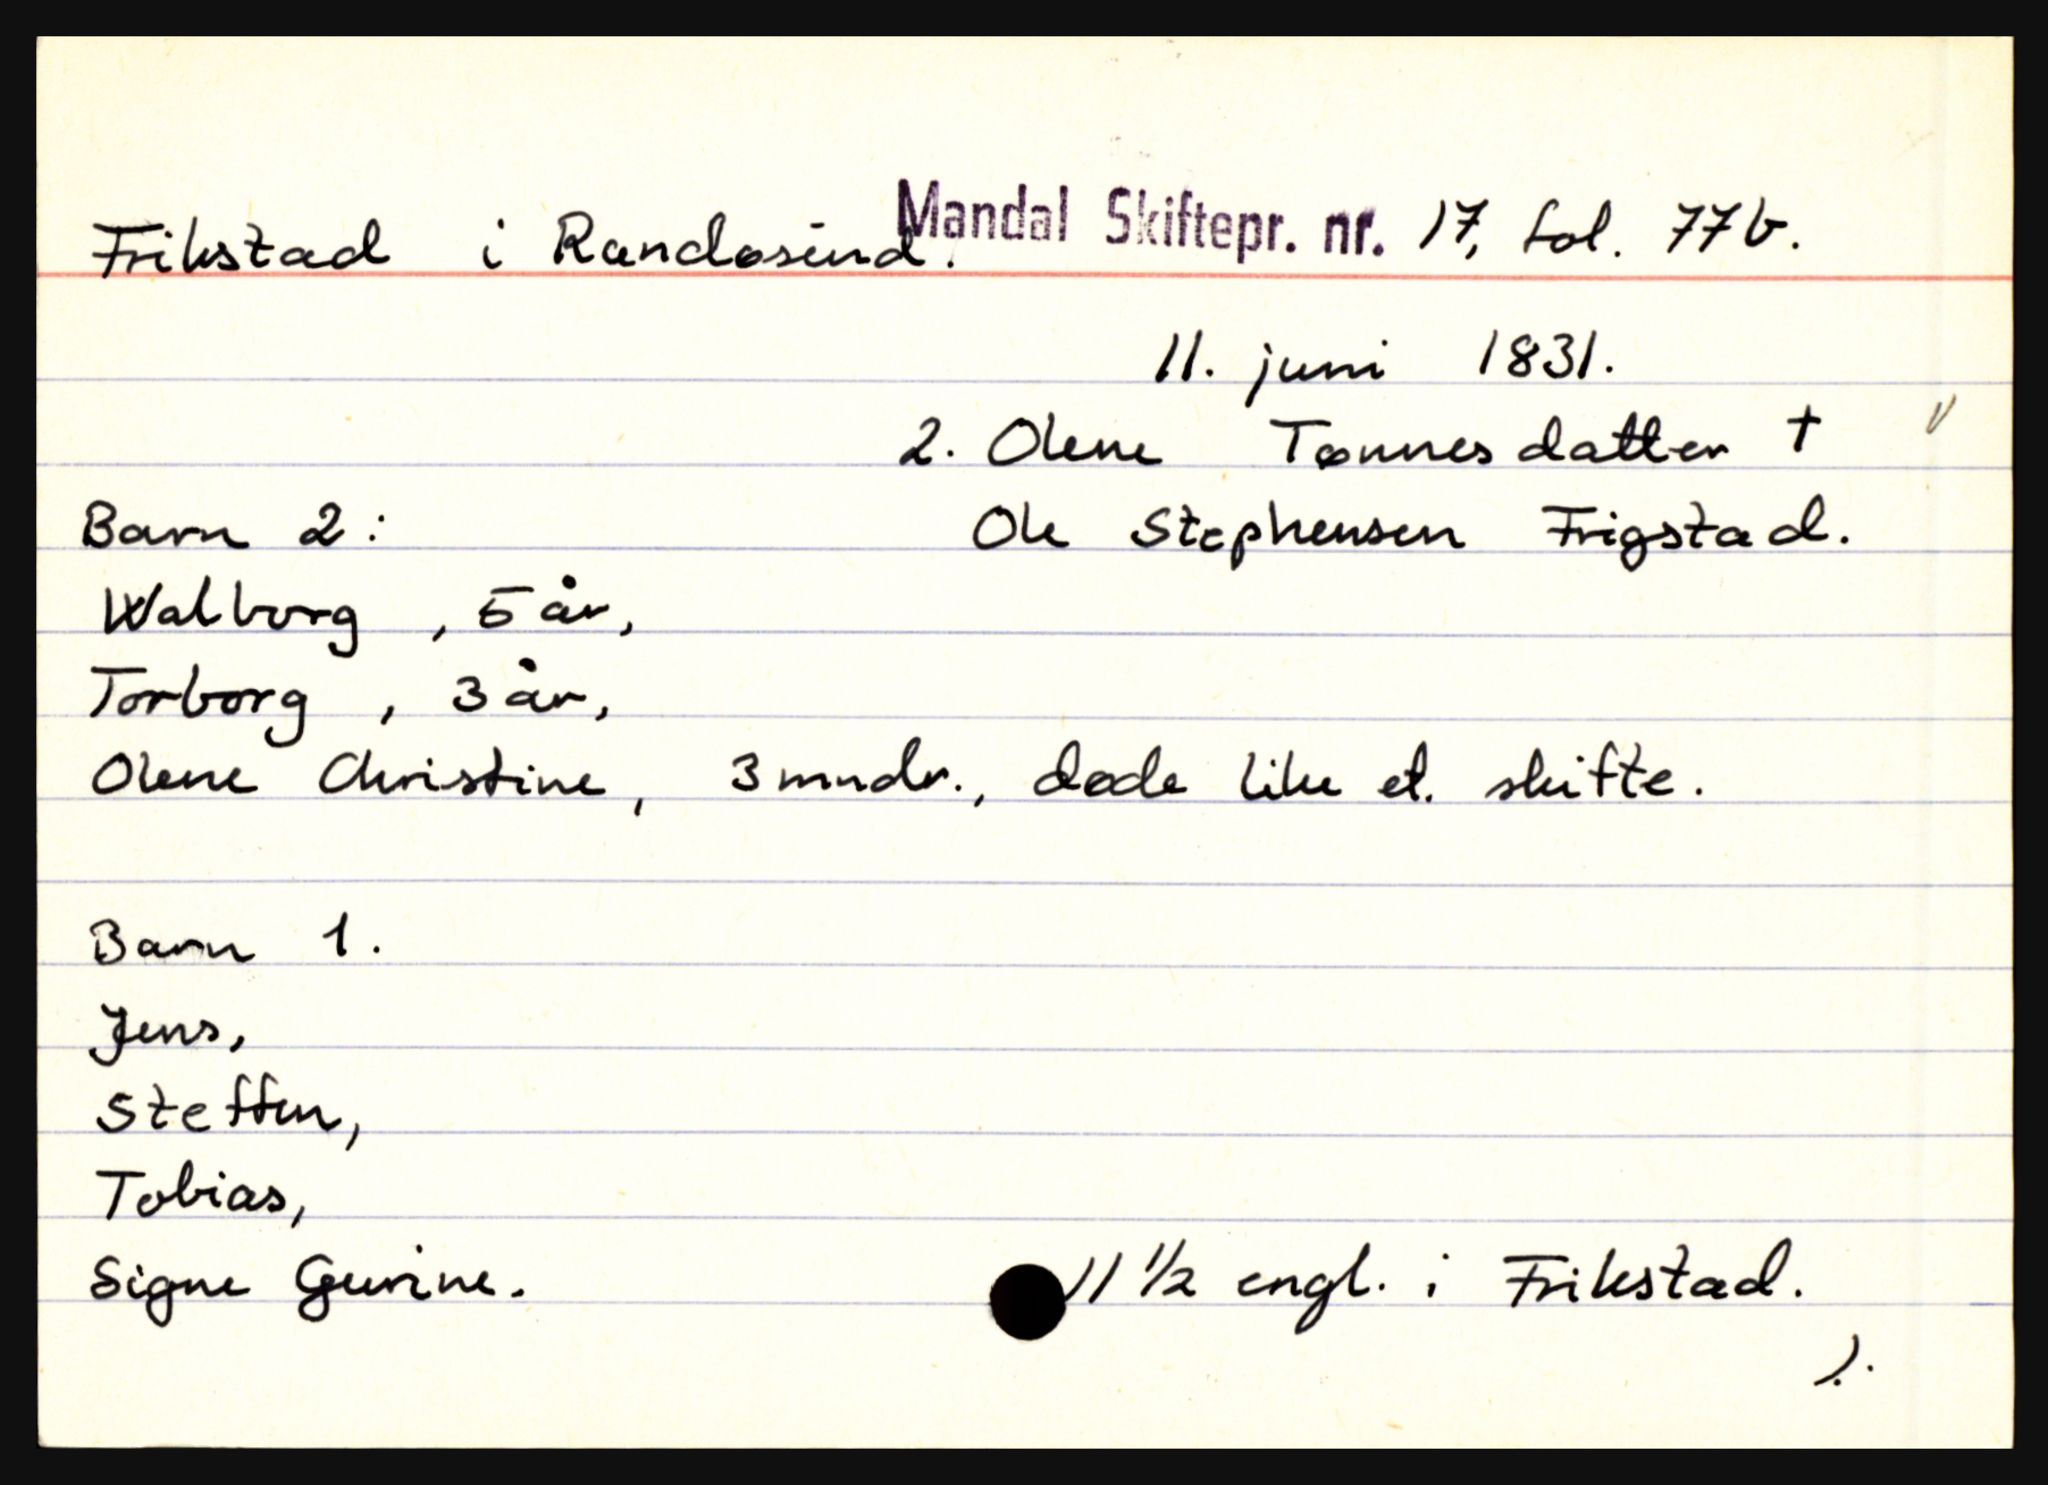 Frikstad i Randøsund. Mandal Skiftepr. nr. 17, fol. 77b.
11. juni 1831.
2. Olene Tønnesdatter †
Barn 2: Ole Stephensen Frigstad.
Walborg, 5 år,
Torborg, 3 år,
Olene Christine, 3 mndr., døde like et. skifte.
Barn 1.
Jens,
Steffen,
Tobias,
Signe Gurine.
11 1/2 engl. i Frikstad.